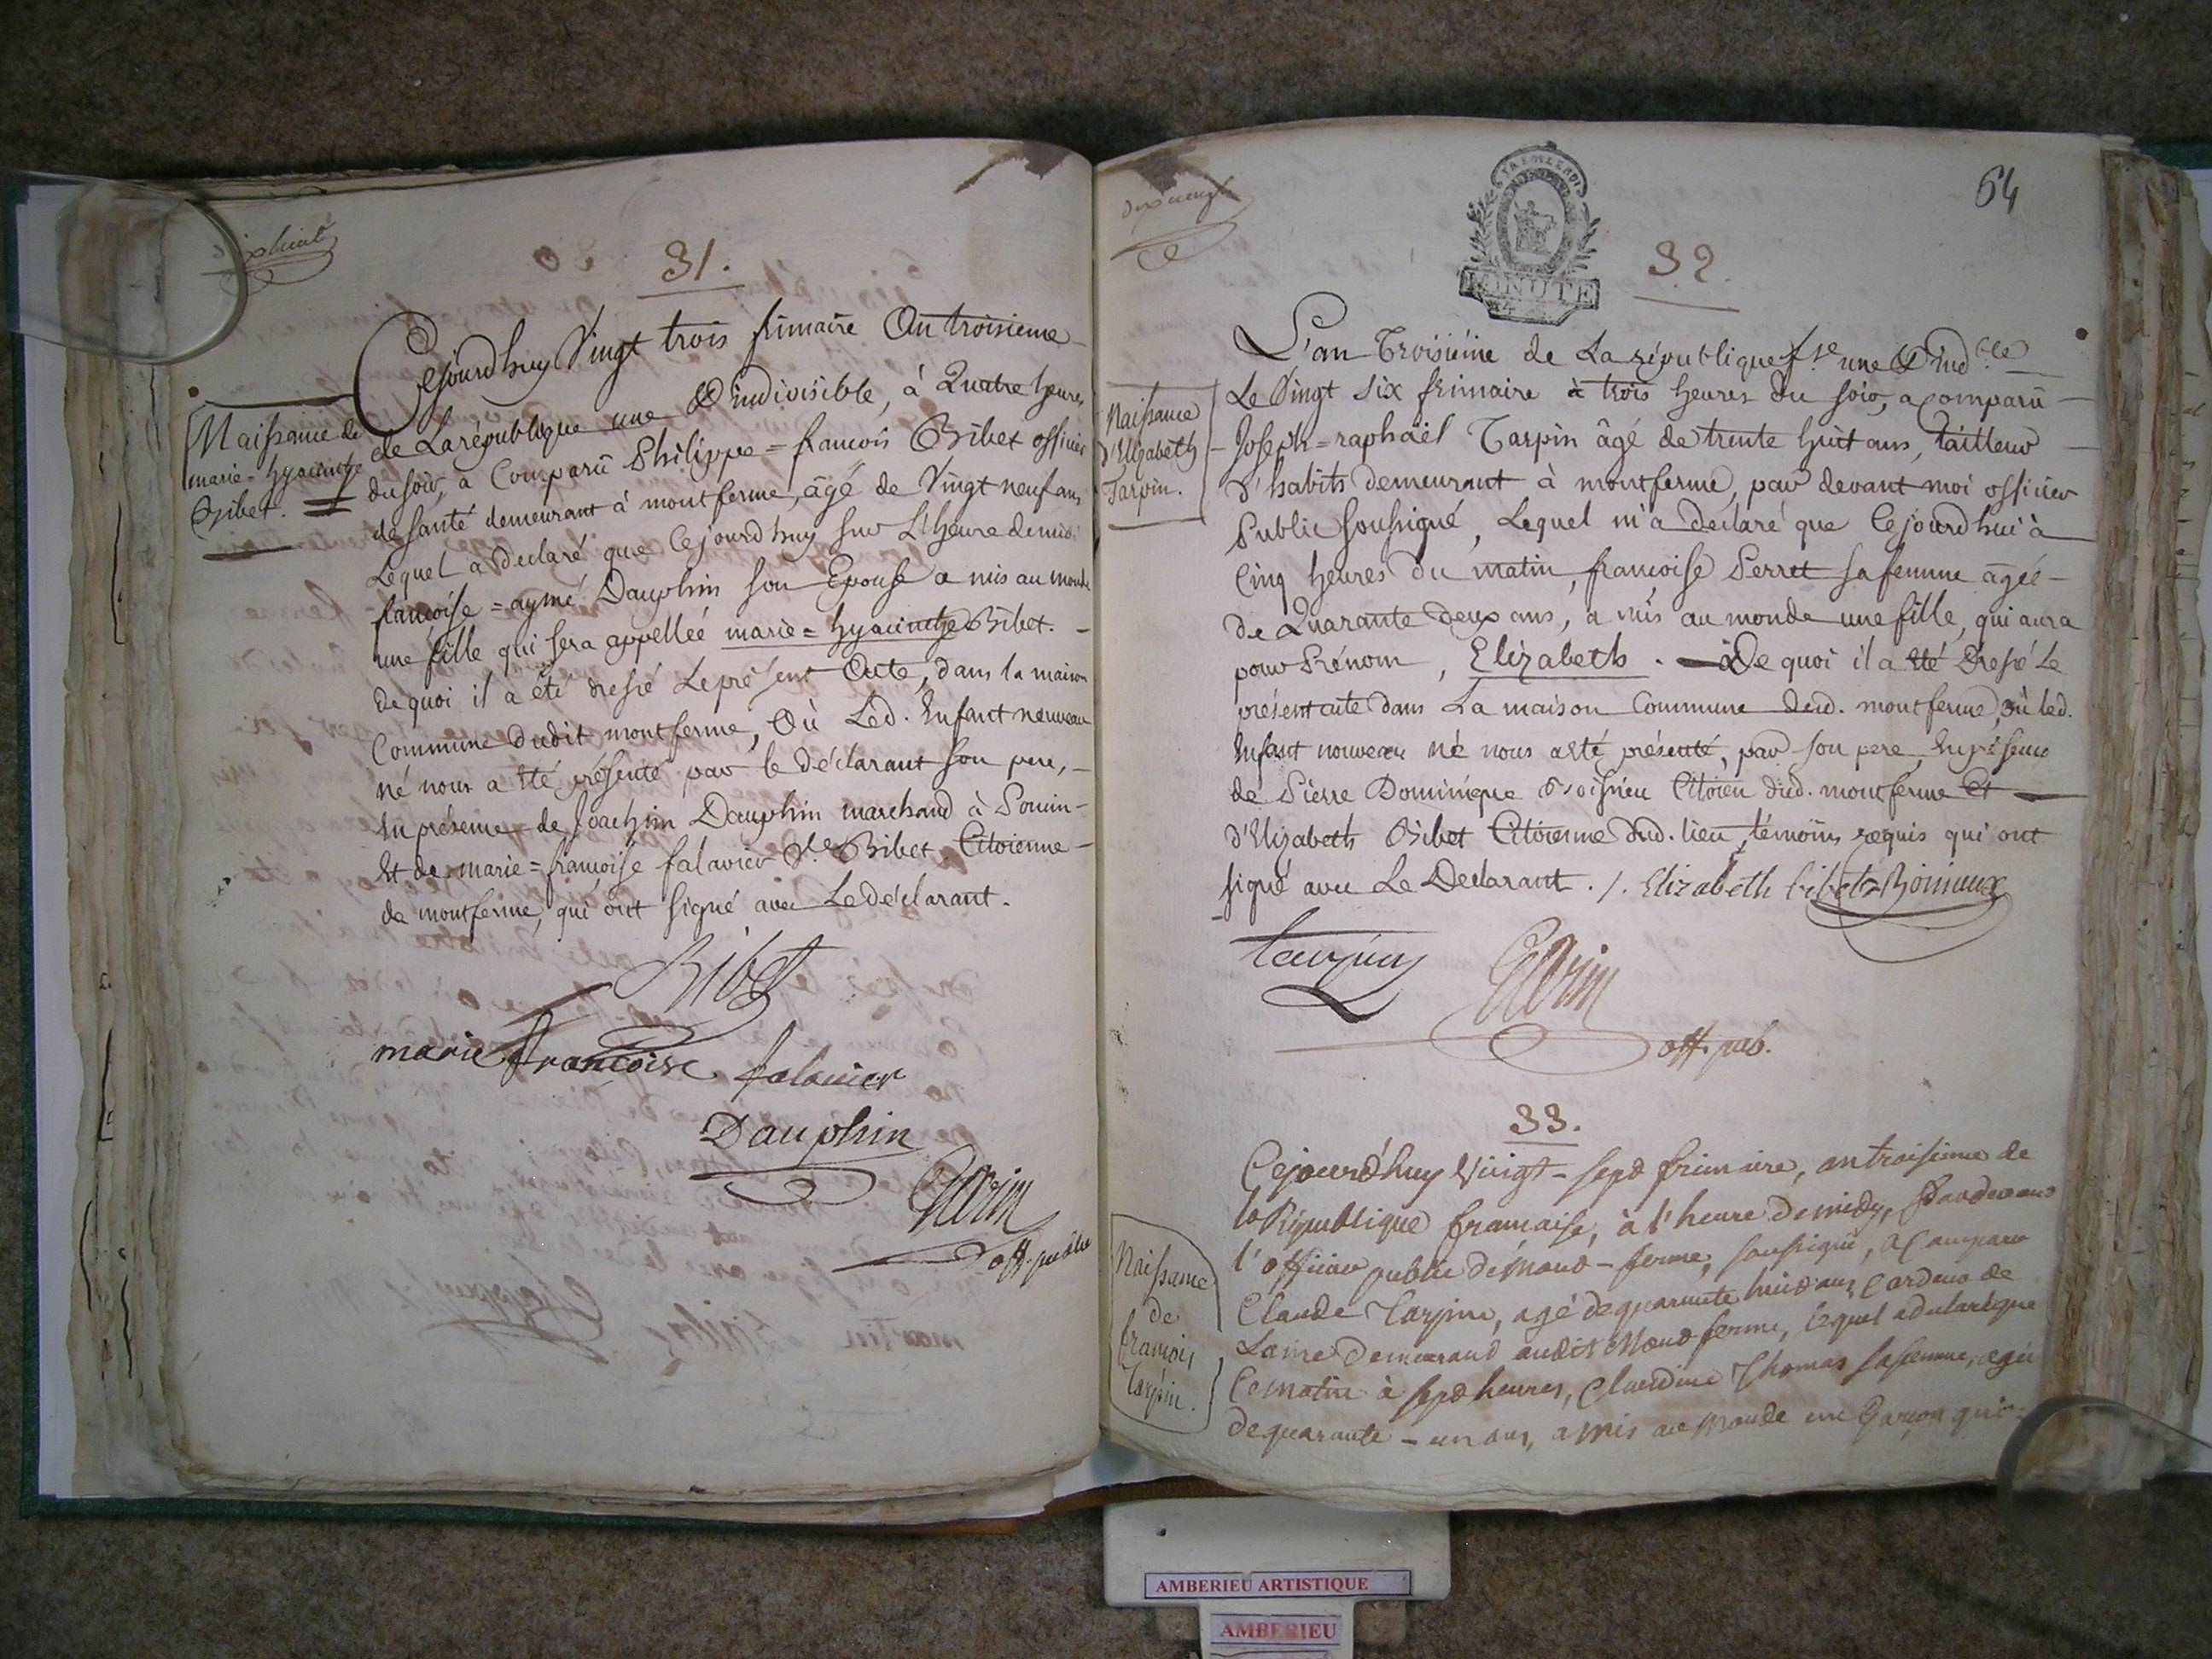 dixhuit
31.
Cejourdhuy Vingt trois frimaire An troisieme
de La république une & indivisible, à Quatre heures
du soir, a Comparû Philippe = francois Bibet officier
de santé demeurant à montferme, âgé de Vingt neuf ans
Lequel a declaré que Cejourdhuy sur L'heure de midi
francoise = aymé Dauphin son Epouse a mis au monde
une fille qui sera appellée marie = hyacinthe Bibet.
de quoi il a été dressé Le présent Acte, dans la maison
Commune dudit montferme, Où Led. Enfant nouveau
né nous a été présenté par le déclarant son pere,
En présence de Joachim Dauphin marchand à
Et de marie = francoise falavier Bibet Citoienne
de montferme, qui ont signé avec Le déclarant.
Naissance de
marie = hyacinthe
Bibet.
Bibet
marie francoise falavier
Dauphin
off. public
dixneuf
64
MINUTE
32
L'an Troisiéme de La république fse une & Indble
Le Vingt six frimaire à trois heures du soir, a comparû
Joseph = raphaël Tarpin âgé de trente huit ans, tailleur
d'habits demeurant à montferme, par devant moi officier
Public soussigné, Lequel m'a declaré que Cejourdhui à
Cinq heures du matin, francoise Perret sa femme âgée
de Quarante deux ans, a mis au monde une fille, qui aura
pour Prénom, Elizabeth. De quoi il a été Dressé Le
présent acte dans La maison Commune dud. montferme, où led.
Enfant nouveau né nous a été présenté, par son pere, En présence
de Pierre Dominique Citoien dud. montferme Et
d'Elizabeth Bibet Citoienne dud. lieu, témoins requis qui ont
signé avec Le Declarant. /. Elizabeth bibet
Naissance
d'Elizabeth
Tarpin.
tarpin
off. pub.
33.
Cejourd'huy vingt-sept frimaire, an troisieme de
la République française, à l'heure de midy, pardevant
l'officier public de Mont-ferme, soussigné, a Comparu
Claude Tarpin, agé de quarante huit ans, Cardeur de
Laine demeurant audit Mont ferme, lequel a declaré que
Ce matin à sept heures, Claudine Thomas sa femme, agée
de quarante-un ans, a mis au monde un Garçon qui
Naissance
de
francois
Tarpin.
AMBERIEU ARTISTIQUE
AMBERIEU